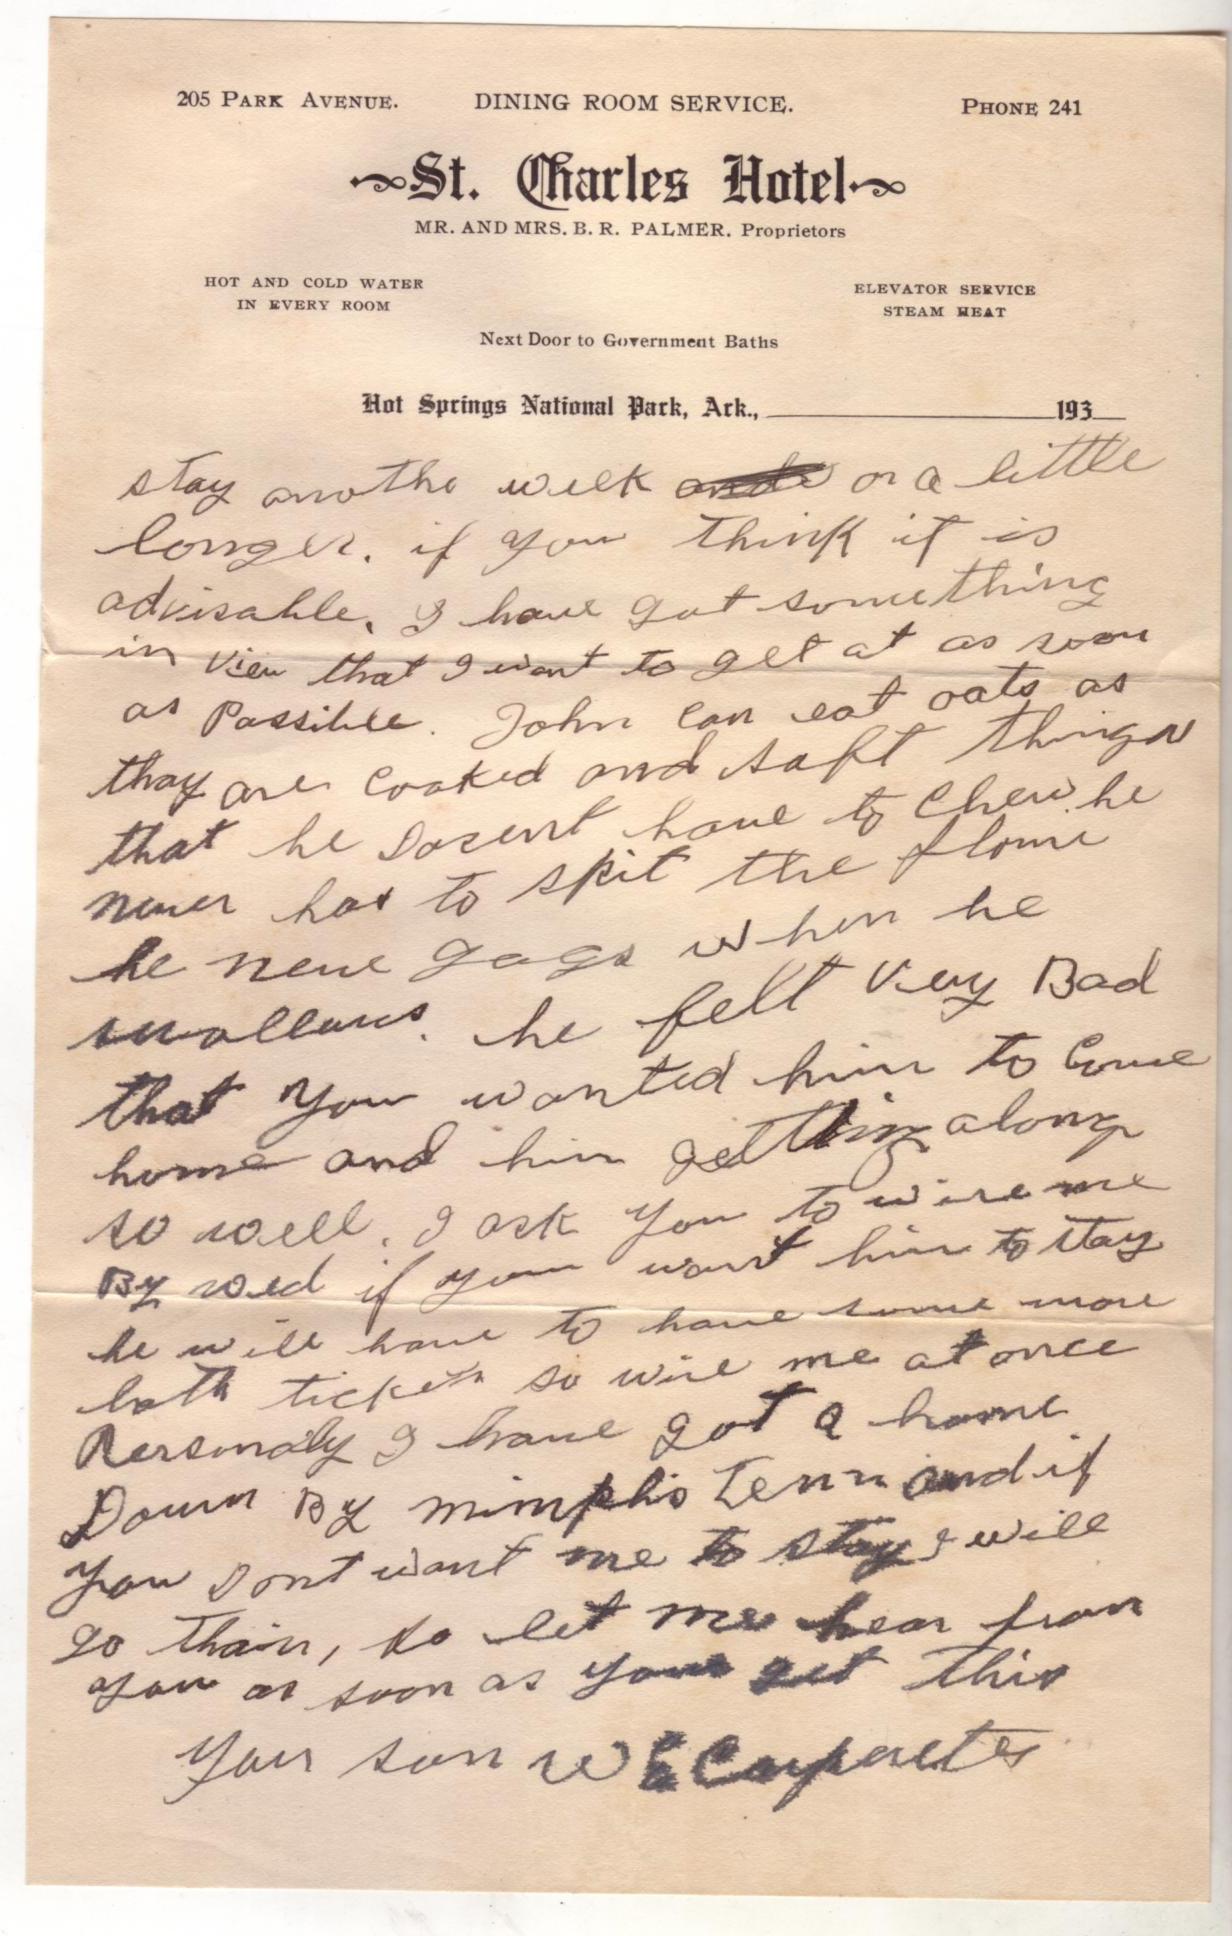 205 PARK AVENUE. DINING ROOM SERVICE. PHONE 241
St. Charles Hotel
MR. AND MRS. B. R. PALMER. Proprietors
HOT AND COLD WATER IN EVERY ROOM
ELEVATOR SERVICE STEAM HEAT
Next Door to Government Baths
Hot Springs National Park, Ark., 193
stay anothe week or a little
longer. if you think it is
advisable. I have got something
in view that I want to get at as soon
as Possible. John can eat oats as
thay are cooked and soft things
that he Dosent have to chew. he
never has to spit the flem
he neve gags when he
swallows. he felt very Bad
that you wanted him to come
home and him getting along
so well. I ask you to wire me
By wed if you want him to stay
he will have to have some more
bath tickets so wire me at once
Personaly I have got a home
Down By Mimphis Tenn and if
you Dont want me to stay I will
go thair, so let me hear from
you as soon as you get this
Your son W E Carpenter